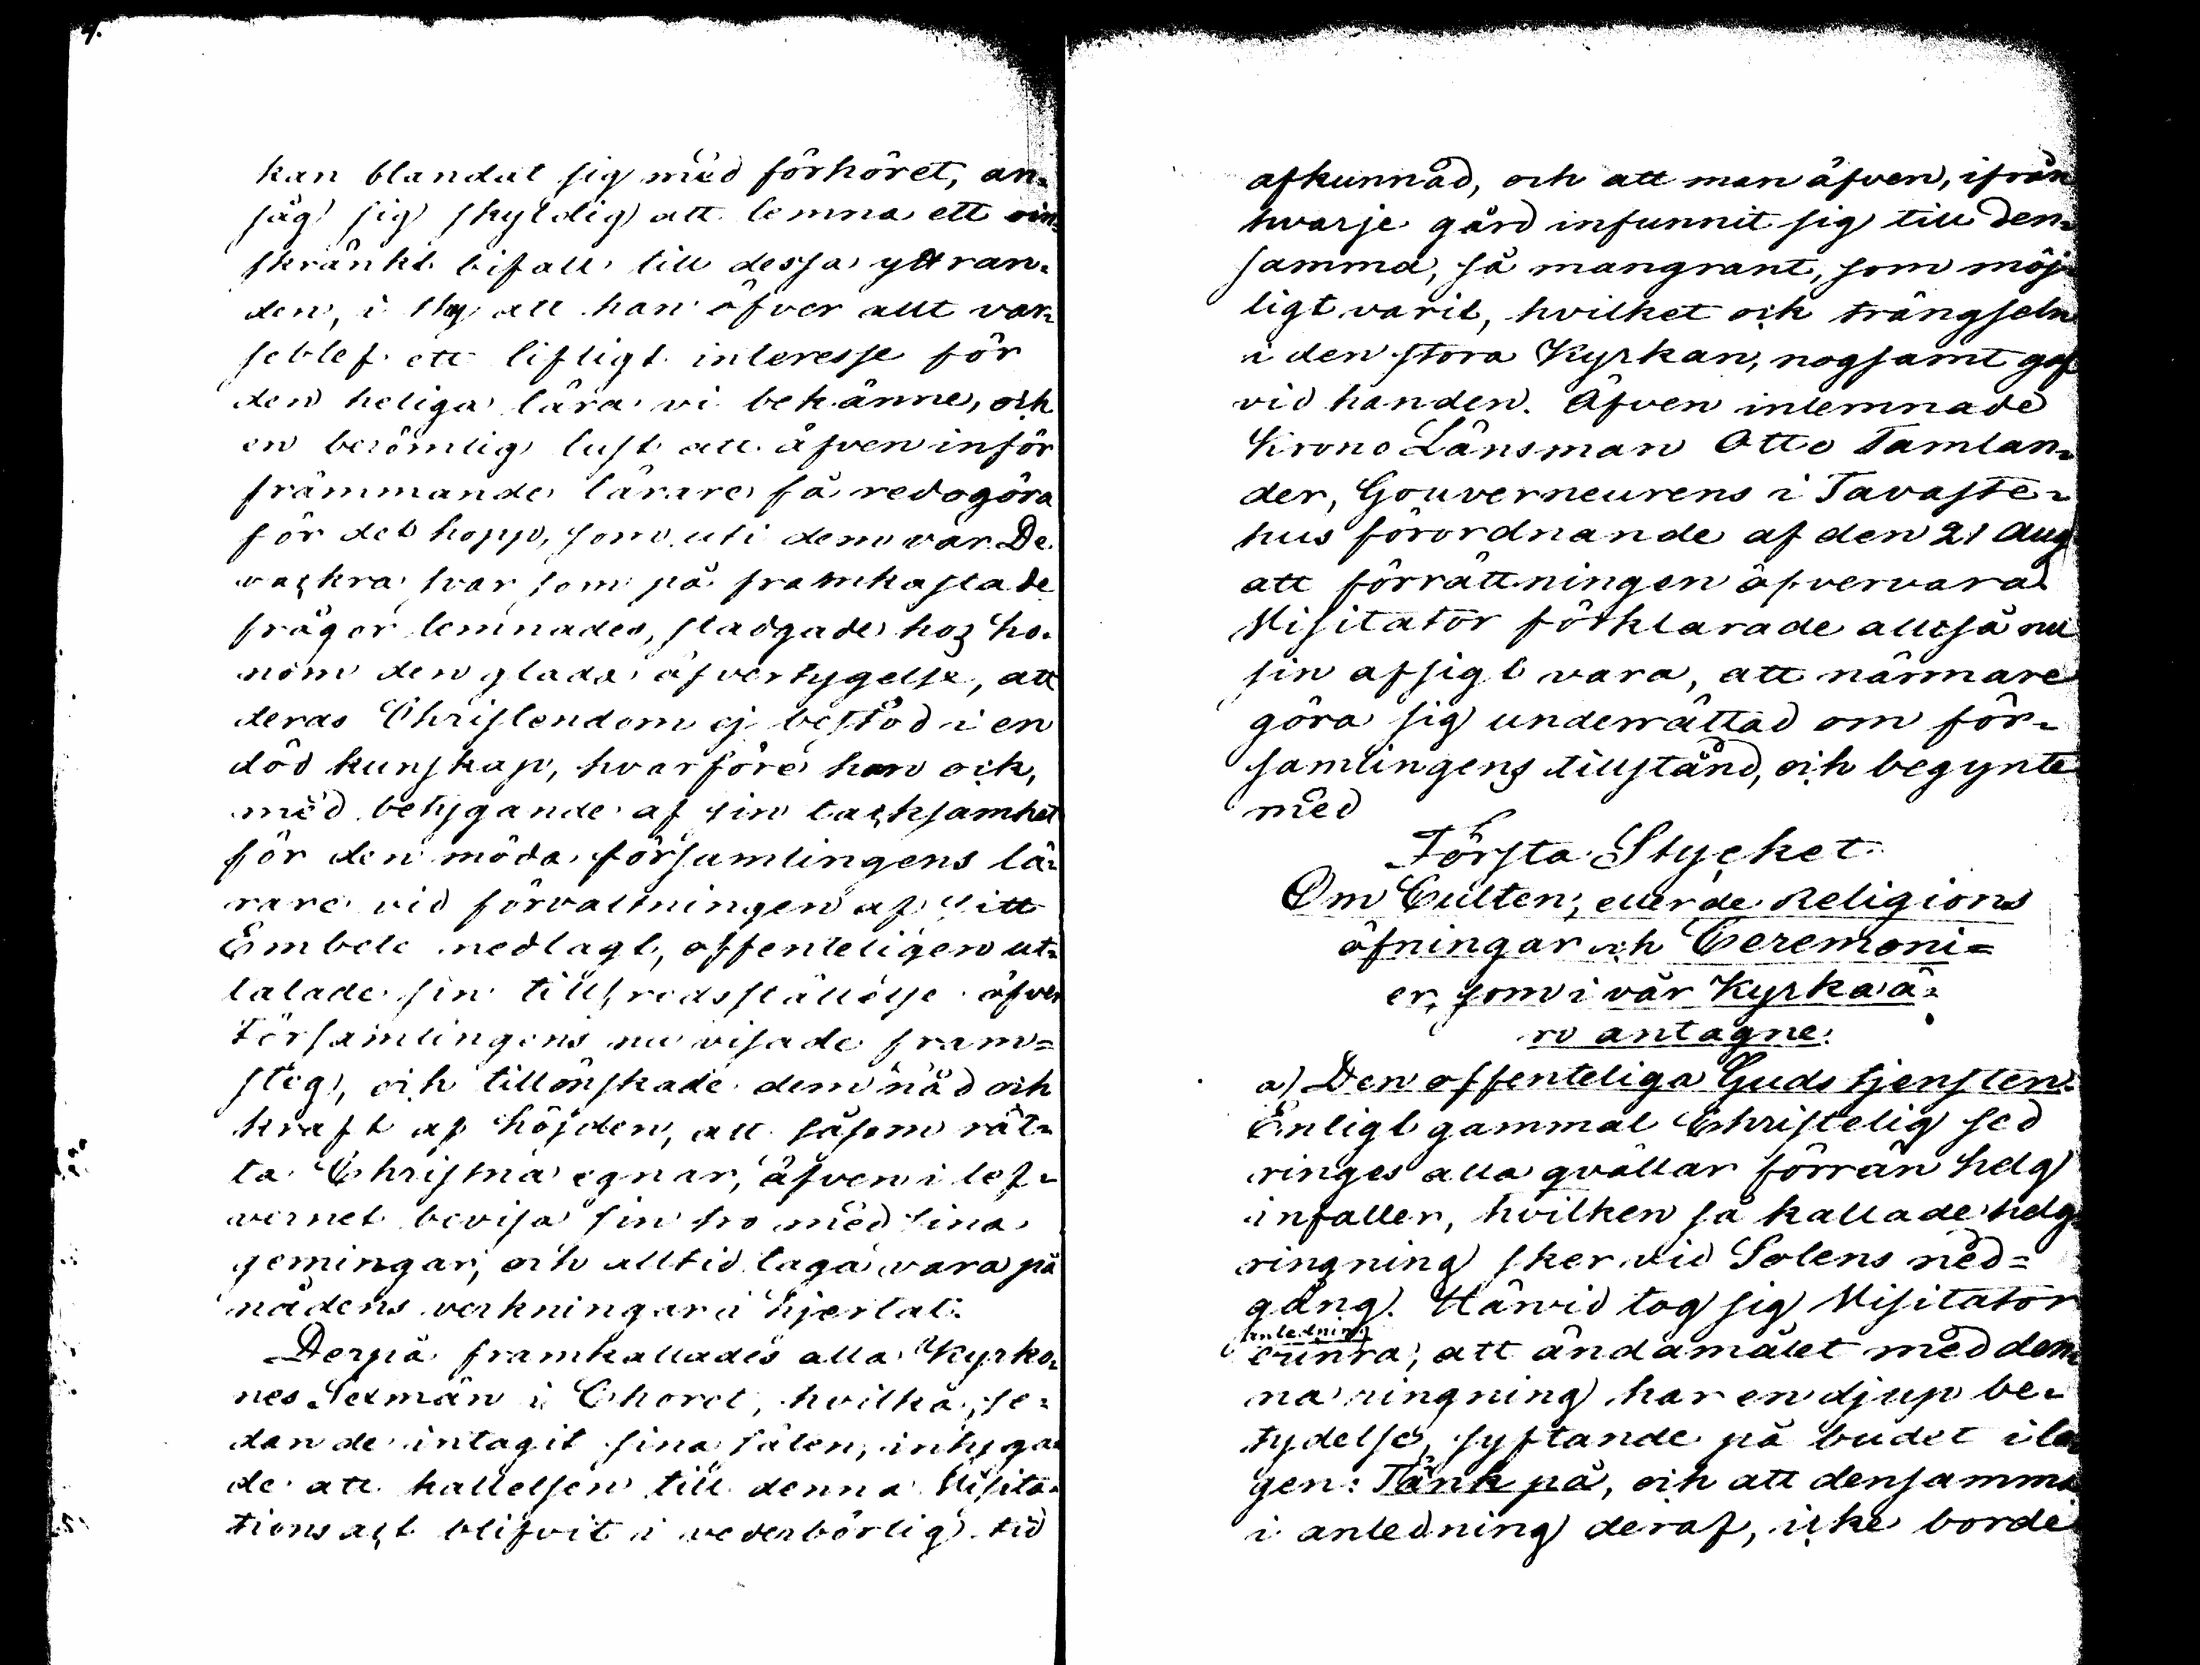 4.
kan blandat sig med förhöret, an-
såg sig skyldig att lemna ett oin-
skränkt bifall till dessa yttran-
den, i thy att han öfver allt var-
seblef ett lifligt interesse för
den heliga lära vi bekänne, och
en berömlig lust att äfven inför
främmande lärare få redogöra
för det hopp, som uti dem var. De
vackra svar som på framkastade
frågor lemnades, stadgade hos ho-
nom den glada öfvertygelse, att
deras Christendom ej bestod i en
död kunskap, hvarföre han ock,
med betygande af sin tacksamhet
för den möda församlingens lä-
rare vid förvaltningen af sitt
Embete nedlagt, offenteligen ut-
talade sin tillfredsställelse öfver
Församlingens nu visade fram=
steg, och tillönskade dem nåd och
kraft af höjden, att såsom rät-
ta Christna egnar, äfven i lef-
vernet bevisa sin tro med sina
gerningar, och alltid taga vara på
nådens verkningar i hjertat.
Derpå framkallades alla Kyrko-
nes Sexmän i Choret, hvilka, se-
dan de intagit sina säten, intyga-
de att kallelsen till denna Visita-
tions act blifvit i vederbörlig tid
afkunnad, och att man äfven, ifrån
hvarje gård infunnit sig till den-
samma, så mangrant, som möj-
ligt varit, hvilket ock trängseln
i den stora Kyrkan, nogsamt gaf
vid handen. Äfven inlemnade
Krono Länsman Otto Tamlan-
der, Gouverneurens i Tavaste-
hus förordnande af den 21 Aug
att förrättningen öfvervara.
Visitator förklarade alltså nu
sin afsigt vara, att närmare
göra sig underrättad om för-
samlingens tillstånd, och begynte
med
Första Stycket.
Om Culten, eller de Religions
öfningar och Ceremoni=
er, som i vår Kyrka ä-
ro antagne.
a) Den offenteliga Gudstjensten.
Enligt gammal Christelig sed
ringes alla qvällar förrän helg
infaller, hvilken så kallade helg-
ringning sker vid Solens ned=
gång. Härvid tog sig Visitator
anledning
erinra, att ändamålet med den-
na ringning har en djup be-
tydelse, syftande på budet i la-
gen: Tänk på, och att densamma
i anledning deraf, icke borde